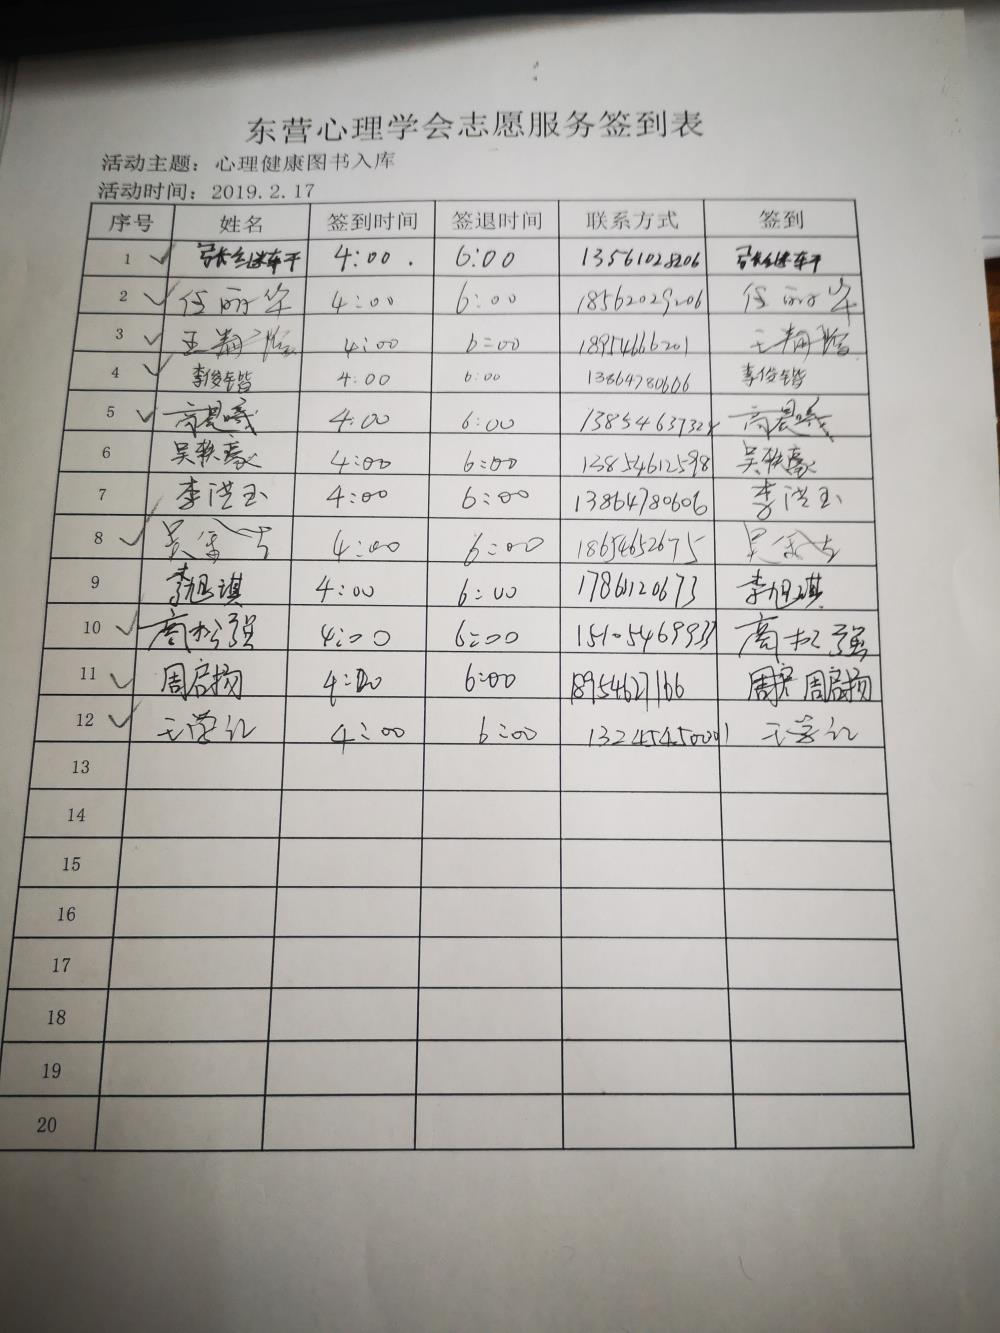 东营心理学会志愿服务签到表
活动主题：心理健康图书入库
活动时间：2019.2.17
序号 姓名 签到时间 签退时间 联系方式 签到
1 4:00. 6:00 13561028206
2 任丽华 4:00 6:00 18562029206 任丽华
3 王 4:00 6:00 18954666201 王
4 李俊锴 4:00 6:00 13864780606 李俊锴
5 高晨曦 4:00 6:00 高晨曦
6 吴轶豪 4:00 6:00 13854612598 吴轶豪
7 李洪玉 4:00 6:00 13864780606 李洪玉
8 吴 4:00 6:00 18654652675 吴
9 李旭琪 4:00 6:00 17861120673 李旭琪
10 商松强 4:00 6:00 商松强
11 周启扬 4:00 6:00 18954627166 周启扬
12 王学红 4:00 6:00 王学红
13
14
15
16
17
18
19
20